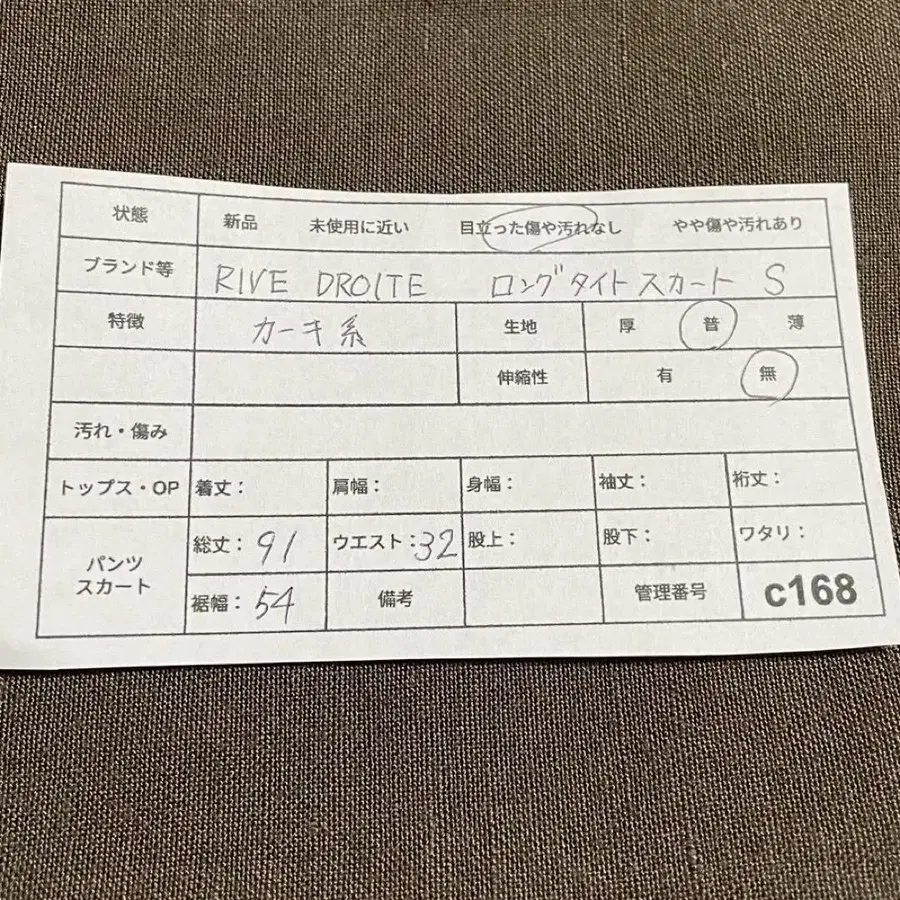 状態 新品 未使用に近い 目立った傷や汚れなし やや傷や汚れあり
ブランド等 RIVE DROITE ロングタイトスカート S
特徴 カーキ系 生地 厚 普 薄
伸縮性 有 無
汚れ・傷み
トップス・OP 着丈: 肩幅: 身幅: 袖丈: 裄丈:
パンツ スカート 総丈:91 ウエスト:32 股上: 股下: ワタリ:
裾幅:54 備考 管理番号 c168